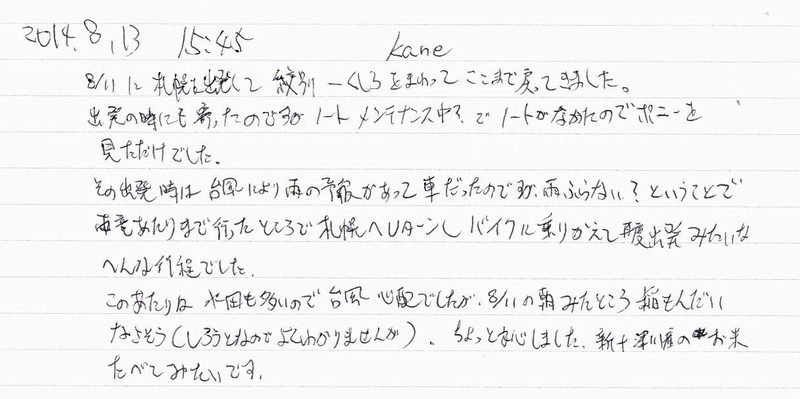 2014.8.13 15:45 kane
8/11に札幌を出発して 紋別 ーくしろをまわって ここまで戻ってきました。
出発の時にも寄ったのですが ノート メンテナンス中? で ノートがなかたのでポニーを
見ただけでした。
その出発時は 台風により雨の予報があって 車だったのですが、雨ふらない? ということで
あたりまで行ったところで 札幌へUターンし バイクに乗りかえて再度出発 みたいな
へんな行程でした.
このあたりは 水田も多いので 台風 心配でしたが、8/11の朝みたところ 稲もんだい
なさそう(しろうとなのでよくわかりませんが). ちょっと安心しました. 新十津川産の お米
たべてみたいです.